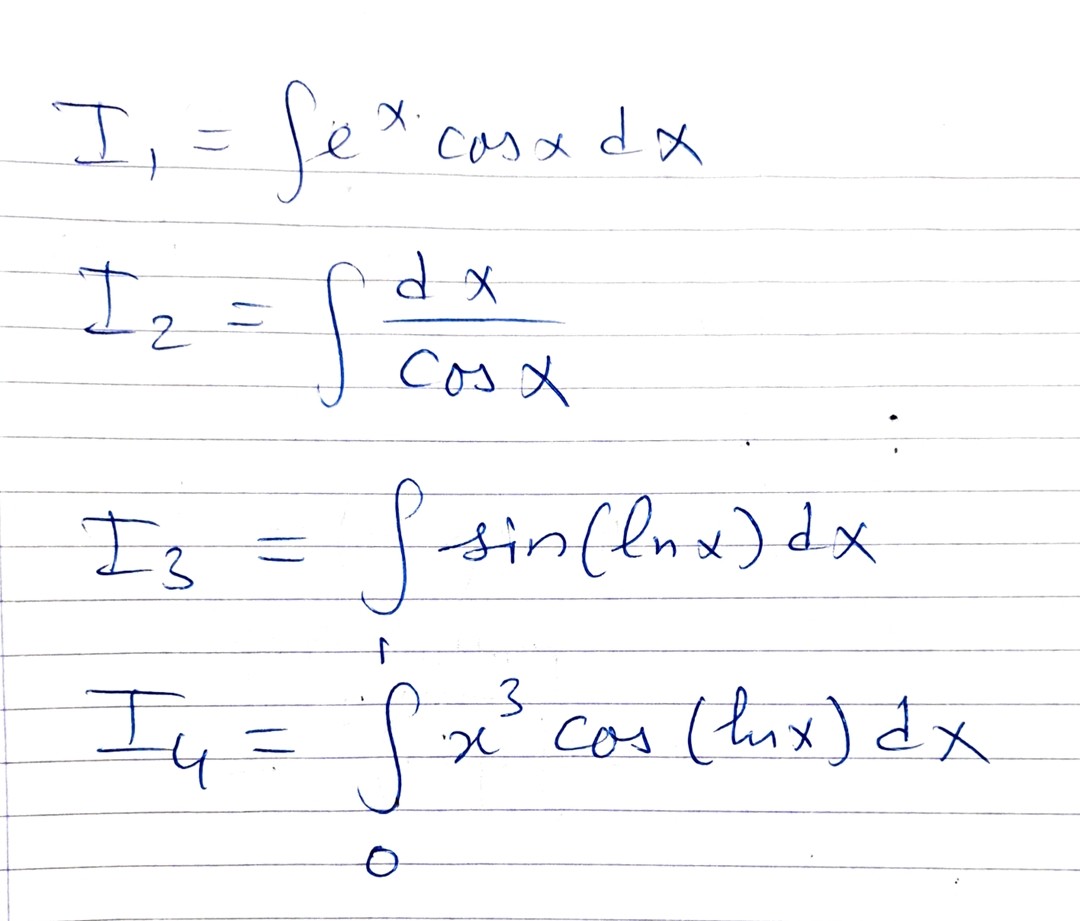 I₁ = ∫eˣ cosx dx
I₂ = ∫ dx / cosx
I₃ = ∫ sin(lnx) dx
I₄ = ∫₀¹ x³ cos (lnx) dx